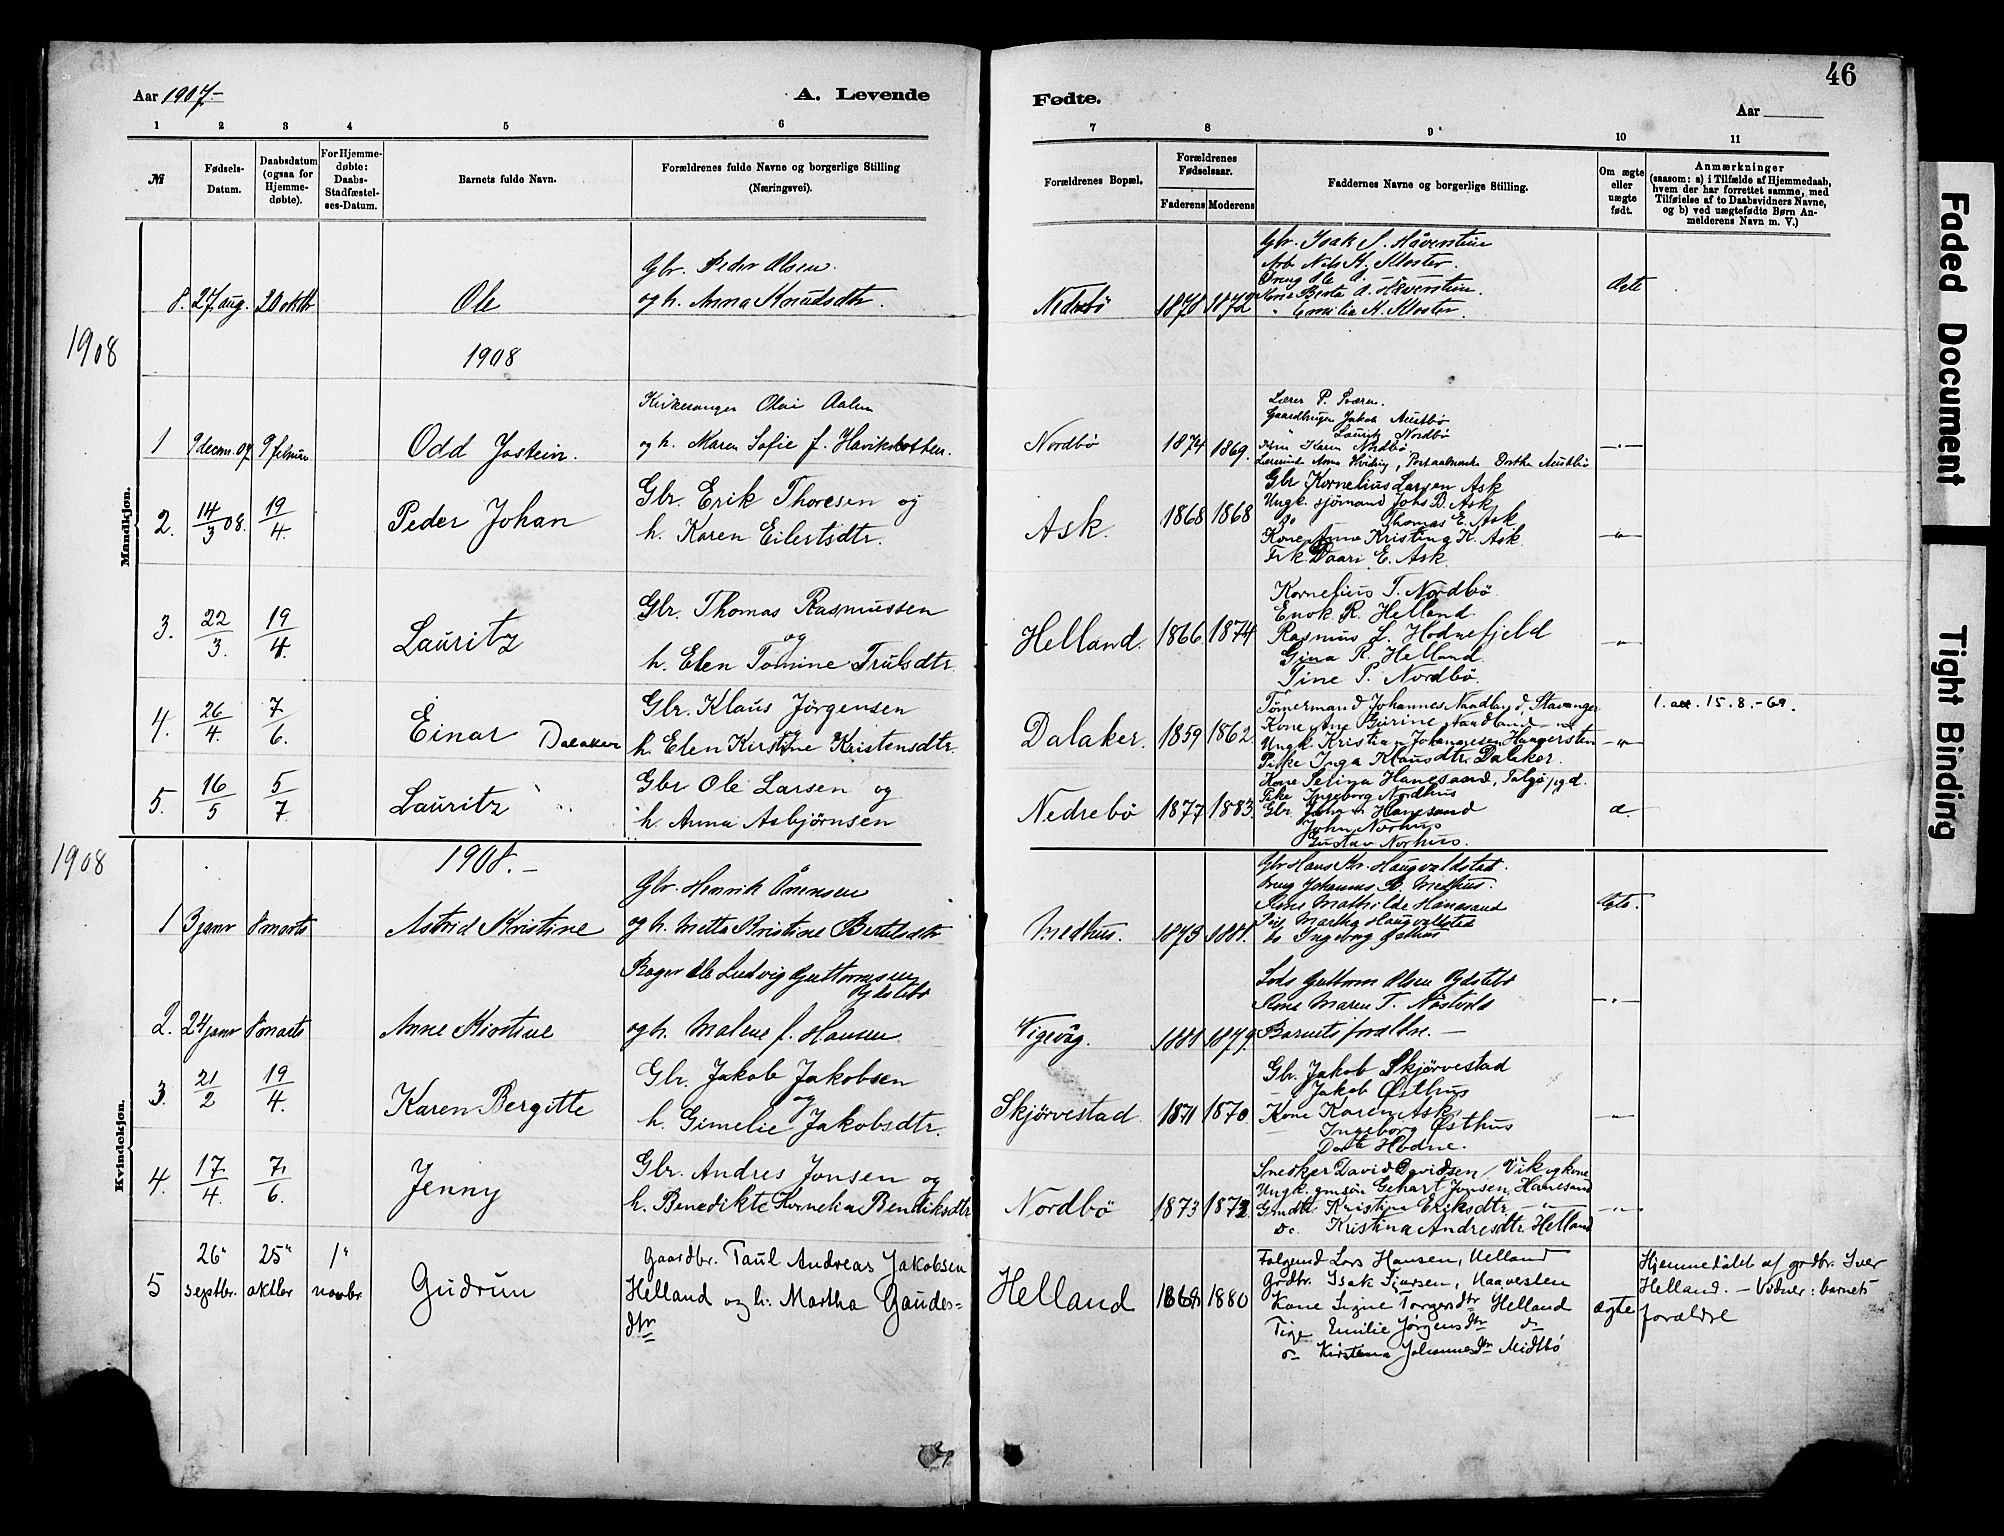 46
Aar 1907.–
A. Levende
Fødte.
Aar
1 2 3 4 5 6 7 8 9 10 11
№
Fødsels-
Datum.
Daabsdatum
(ogsaa for
Hjemme-
døbte).
For Hjemme-
døbte:
Daabs-
Stadfæstel-
ses-Datum.
Barnets fulde Navn.
Forældrenes fulde Navne og borgerlige Stilling
(Næringsvei).
Forældrenes Bopæl.
Forældrenes
Fødselsaar.
Faderens Moderens
Faddernes Navne og borgerlige Stilling.
Om ægte
eller
uægte
født.
Anmærkninger
(saasom: a) i Tilfælde af Hjemmedaab,
hvem der har forrettet samme, med
Tilføielse af to Daabsvidners Navne,
og b) ved uægtefødte Børn An-
melderens Navn m. V.)
Mandkjøn.
8. 27 aug. 20 oktbr Ole
Gbr. Peder Olsen.
og h. Anna Knudsdtr.
Nedrebø 1878 1872
Gbr. Isak S. Håverstein
Arb Nils K. Kloster.
Kone Berta O. Håverstein.
" Emilia K. Kloster.
Ægte
1908
1908
1 9 decm. 07 9 februar Odd Jostein.
Kirkesanger Olai Aalen
og h. Maren Sofie f. Haviksbotten.
Nordbø 1874 1869.
Lærer P. Sværen.
Gaardbruger Jakob Austbø
" Lauritz Nordbø
Kone Karen Nordbø
–"–
2. 14/3 08. 19/4. Peder Johan
Gbr. Erik Thoresen og
h. Karen Eilertsdtr.
Ask. 1868 1868
Gbr Kornelius Larsen Ask
Ungk. sjömand Johs B. Ask
Do Thomas E. Ask
Kone Anna Kristina K. Ask.
Frk. Daari E. Ask.
–"–
3. 22/3. 19/4. Lauritz
Gbr. Thomas Rasmussen
og
h. Elen Tomine Trulsdtr.
Helland. 1866 1874.
Kornelius T. Nordbø
Enok R. Helland.
Rasmus L. Hodnefjeld
Gina R. Helland.
Tine P. Nordbø.
–"–
4. 26/4. 7/6. Einar Dalaker
Gbr. Klaus Jørgensen
og
h. Elen Kirstine Kristensdtr.
Dalaker. 1859 1862
Tømermand Johannes Nandland, Stavanger
Kone Ane Gurine Nandland –"–
Ungk. Kristian Johannesen Haugersten
Pike Inga Klausdtr. Dalaker.
–"–
1. att. 15.8.–69.
5. 16/5 5/7 Lauritz
Gbr Ole Larsen og
h. Anna Asbjørnsen
Nedrebø 1877 1883.
Kone Selina Hanesand, Talgø pgd.
Pike Ingeborg Nordhus
Gbr. Johan Hanesand
John Norhus
Gustav Norhus.
æ.
1908
1908.–
Kvindekjøn.
1 3 janr 8 marts Astrid Kristine
Gbr. Henrik Ånensen
og h. Mette Kristine Bertelsdtr
Medhus. 1873 1881.
Gbr Hans Kr. Haugvaldstad
Ung Johannes B. Medhus.
Kone Mathilde Hanasand
Pike Martha Haugvaldstad
do Ingeborg Østhus
Ægte.
2. 24 janr 8 marts Anne Kirstine
Bager Ole Ludvig Guttormsen
Ydstebø
og h. Malene f. Hansen
Vigevåg. 1881 1879.
Lods Guttorm Olsen Ydstebø
Kone Maren T. Nåstvold
Barnets forældre. –
–"–
3. 21/2 19/4. Karen Bergitte
Gbr. Jakob Jakobsen
og
h. Gimelie Jakobsdtr.
Skjørvestad 1871 1870.
Gbr. Jakob Skjørvestad
– Jakob Østhus
Kone Karen Ask.
– Ingeborg Østhus
Dorte Hodne.
–"–
4. 17/4. 7/6. Jenny
Gbr. Andres Jonsen og
h. Benedikte Kornelia Bendiksdtr
Nordbø 1873 1872.
Snedker David Davidsen, Vik og kone
Ungk. gmsøn Gehart Jonsen, Hanesand
Gmdtr. Kristine Eriksdtr. –"–
Do. Kristina Andresdtr Helland
–"–
5 26" septbr. 25" oktbr 1" novbr Gudrun
Gaardbr. Paul Andreas Jakobsen
Helland og h: Martha Gaudes-
dtr
Helland 1868 1880
Folgemd Lars Hansen, Helland
Grdbr. Isak Sjursen, Haavesten
Kone Signe Torgersdtr Helland
Pige Emilie Jørgensdtr do
do Kirstena Johannesdtr Midtbø
ægte
Hjemmedøbt af grdbr. Iver
Helland. – Vidner: barnets
forældre
Faded Document
Tight Binding